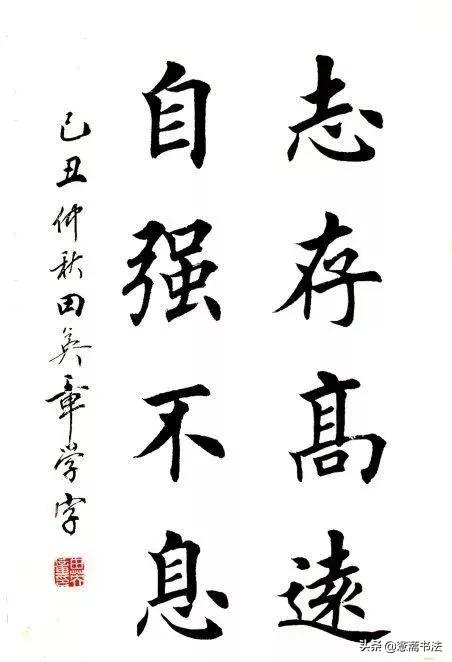 志存髙遠
自强不息
己丑仲秋田英章学字
头条@憲蕭书法